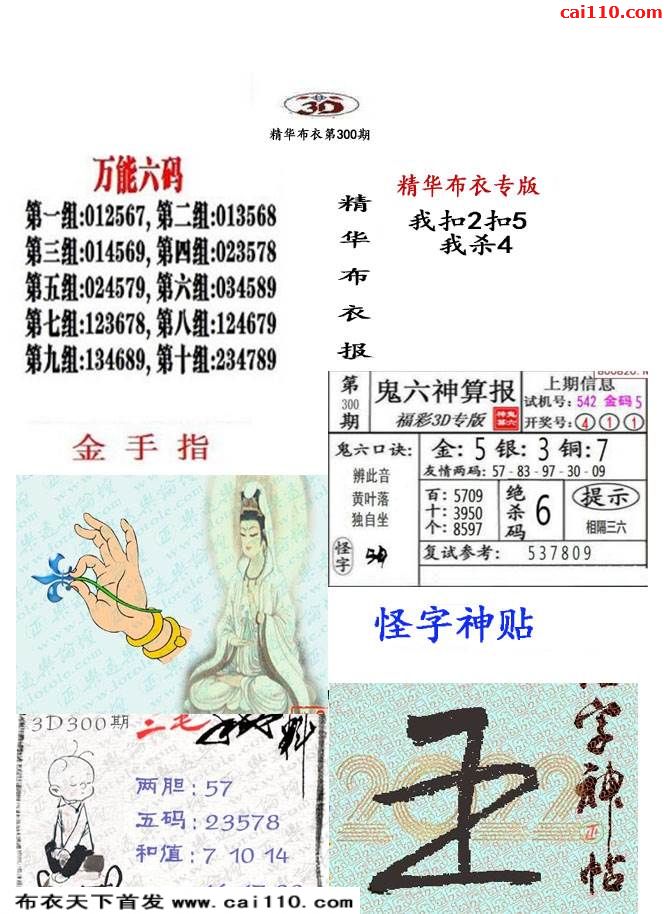 cai110.com
3D
精华布衣第300期
万能六码
第一组:012567, 第二组:013568
第三组:014569, 第四组:023578
第五组:024579, 第六组:034589
第七组:123678, 第八组:124679
第九组:134689, 第十组:234789
精华布衣报
精华布衣专版
我扣2扣5
我杀4
金手指
第300期
鬼六神算报
福彩3D专版
上期信息
试机号: 542 金码 5
开奖号: 4 1 1
鬼六口诀:
辨此音
黄叶落
独自坐
金: 5 银: 3 铜: 7
友情两码: 57-83-97-30-09
百: 5709
十: 3950
个: 8597
绝杀码 6
提示
相隔三六
怪字
复试参考: 537809
怪字神贴
3D300期
两胆: 57
五码: 23578
和值: 7 10 14
字神帖
2022
布衣天下首发 www.cai110.com